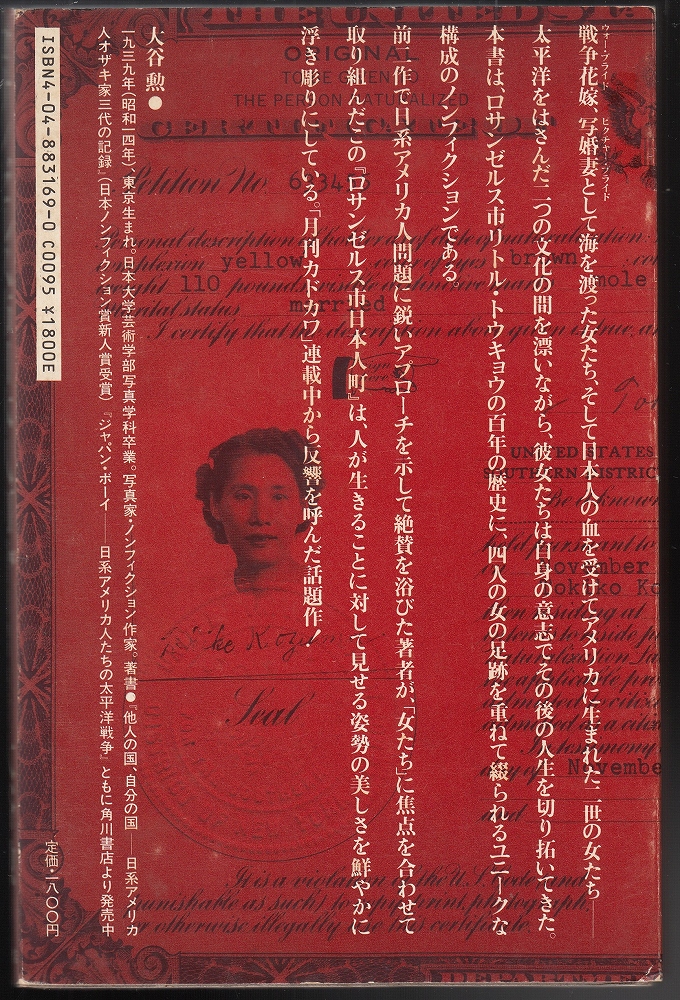 戦争花嫁、写婚妻として海を渡った女たち、そして日本人の血を受けてアメリカに生まれた二世の女たち——
ウォー・ブライド
ピクチャー・ブライド
太平洋をはさんだ二つの文化の間を漂いながら、彼女たちは自身の意志でその後の人生を切り拓いてきた。
本書は、ロサンゼルス市リトル・トウキョウの百年の歴史に、四人の女の足跡を重ねて綴られるユニークな
構成のノンフィクションである。
前一作で日系アメリカ人問題に鋭いアプローチを示して絶賛を浴びた著者が、「女たち」に焦点を合わせて
取り組んだこの『ロサンゼルス市日本人町』は、人が生きることに対して見せる姿勢の美しさを鮮やかに
浮き彫りにしている。「月刊カドカワ」連載中から反響を呼んだ話題作!
大谷 勲●
一九三九年(昭和一四年)、東京生まれ。日本大学芸術学部写真学科卒業。写真家・ノンフィクション作家。著書●『他人の国、自分の国——日系アメリカ
人オザキ家三代の記録』(日本ノンフィクション賞新人賞受賞)『ジャパン・ボーイ——日系アメリカ人たちの太平洋戦争』ともに角川書店より発売中
定価・一八〇〇円
ISBN4-04-883169-0 C0095 ¥1800E
ORIGINAL
TO BE GIVEN TO
THE PERSON NATURALIZED
Petition No.
Personal description of holder as of date of naturalization
complexion yellow
color of eyes brown
110 pounds
mole
marital status married
I certify that the description above given is true
UNITED STATES
SOUTHERN DISTRIC
Be it known
pursuant to
November
then residing at
Seal
November
It is a violation of the U.S. Code and
punishable as such to copy, print, photograph,
or otherwise illegally use this certificate.